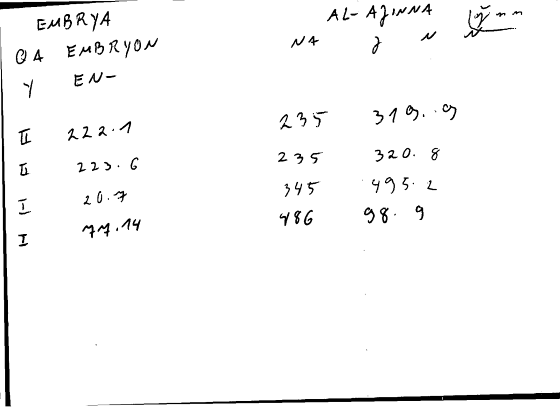 EMBRYA AL-AJINNA
QA EMBRYON NA J N N
Y EN-
II 222.1 235 319. 9
II 223.6 235 320. 8
I 20.7 345 495. 2
I 77.14 486 98. 9